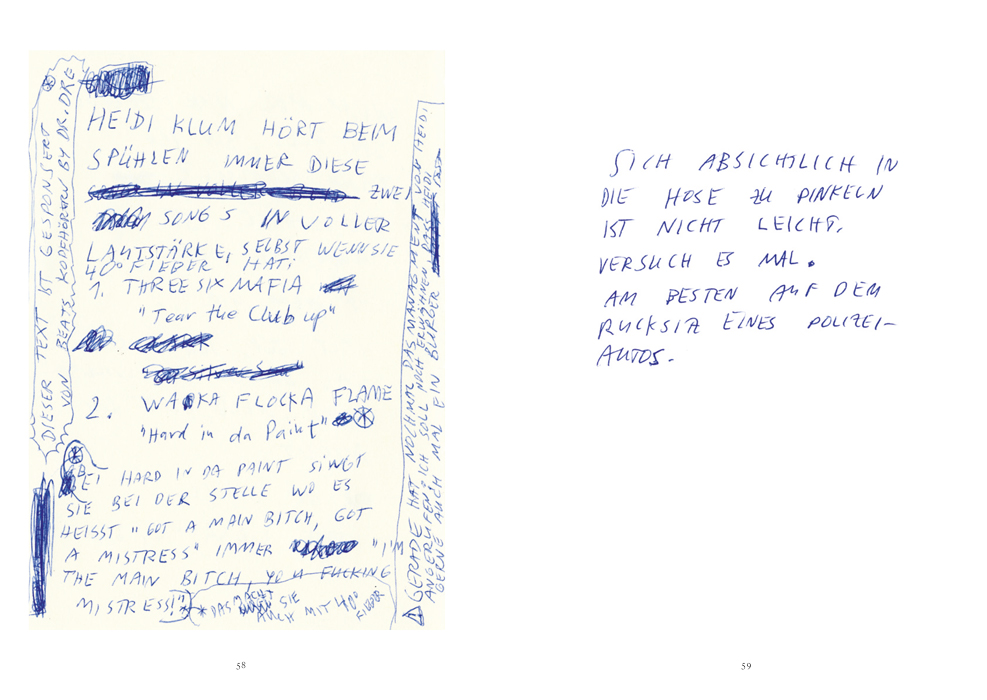 DIESER TEXT IST GESPONSERT
VON BEATS KOPFHÖRERN BY DR. DRE
HEIDI KLUM HÖRT BEIM
SPÜHLEN IMMER DIESE
ZWEI
SONGS IN VOLLER
LAUTSTÄRKE, SELBST WENN SIE
40° FIEBER HAT:
1. THREE SIX MAFIA
"Tear the Club up"
2. WAKA FLOCKA FLAME
"Hard in da Paint"
BEI HARD IN DA PAINT SINGT
SIE BEI DER STELLE WO ES
HEISST "GOT A MAIN BITCH, GOT
A MISTRESS" IMMER "I'M
THE MAIN BITCH, YOU FUCKING
MISTRESS!"
* DAS MACHT
SIE
AUCH MIT 40°
FIEBER!
GERADE HAT NOCHMAL DAS MANAGMENT VON HEIDI
ANGERUFEN, ICH SOLL NOCH ERWÄHNEN, DASS HEIDI
GERNE AUCH MAL EIN BURGER ISST
58
SICH ABSICHTLICH IN
DIE HOSE ZU PINKELN
IST NICHT LEICHT.
VERSUCH ES MAL.
AM BESTEN AUF DEM
RÜCKSITZ EINES POLIZEI-
AUTOS.
59